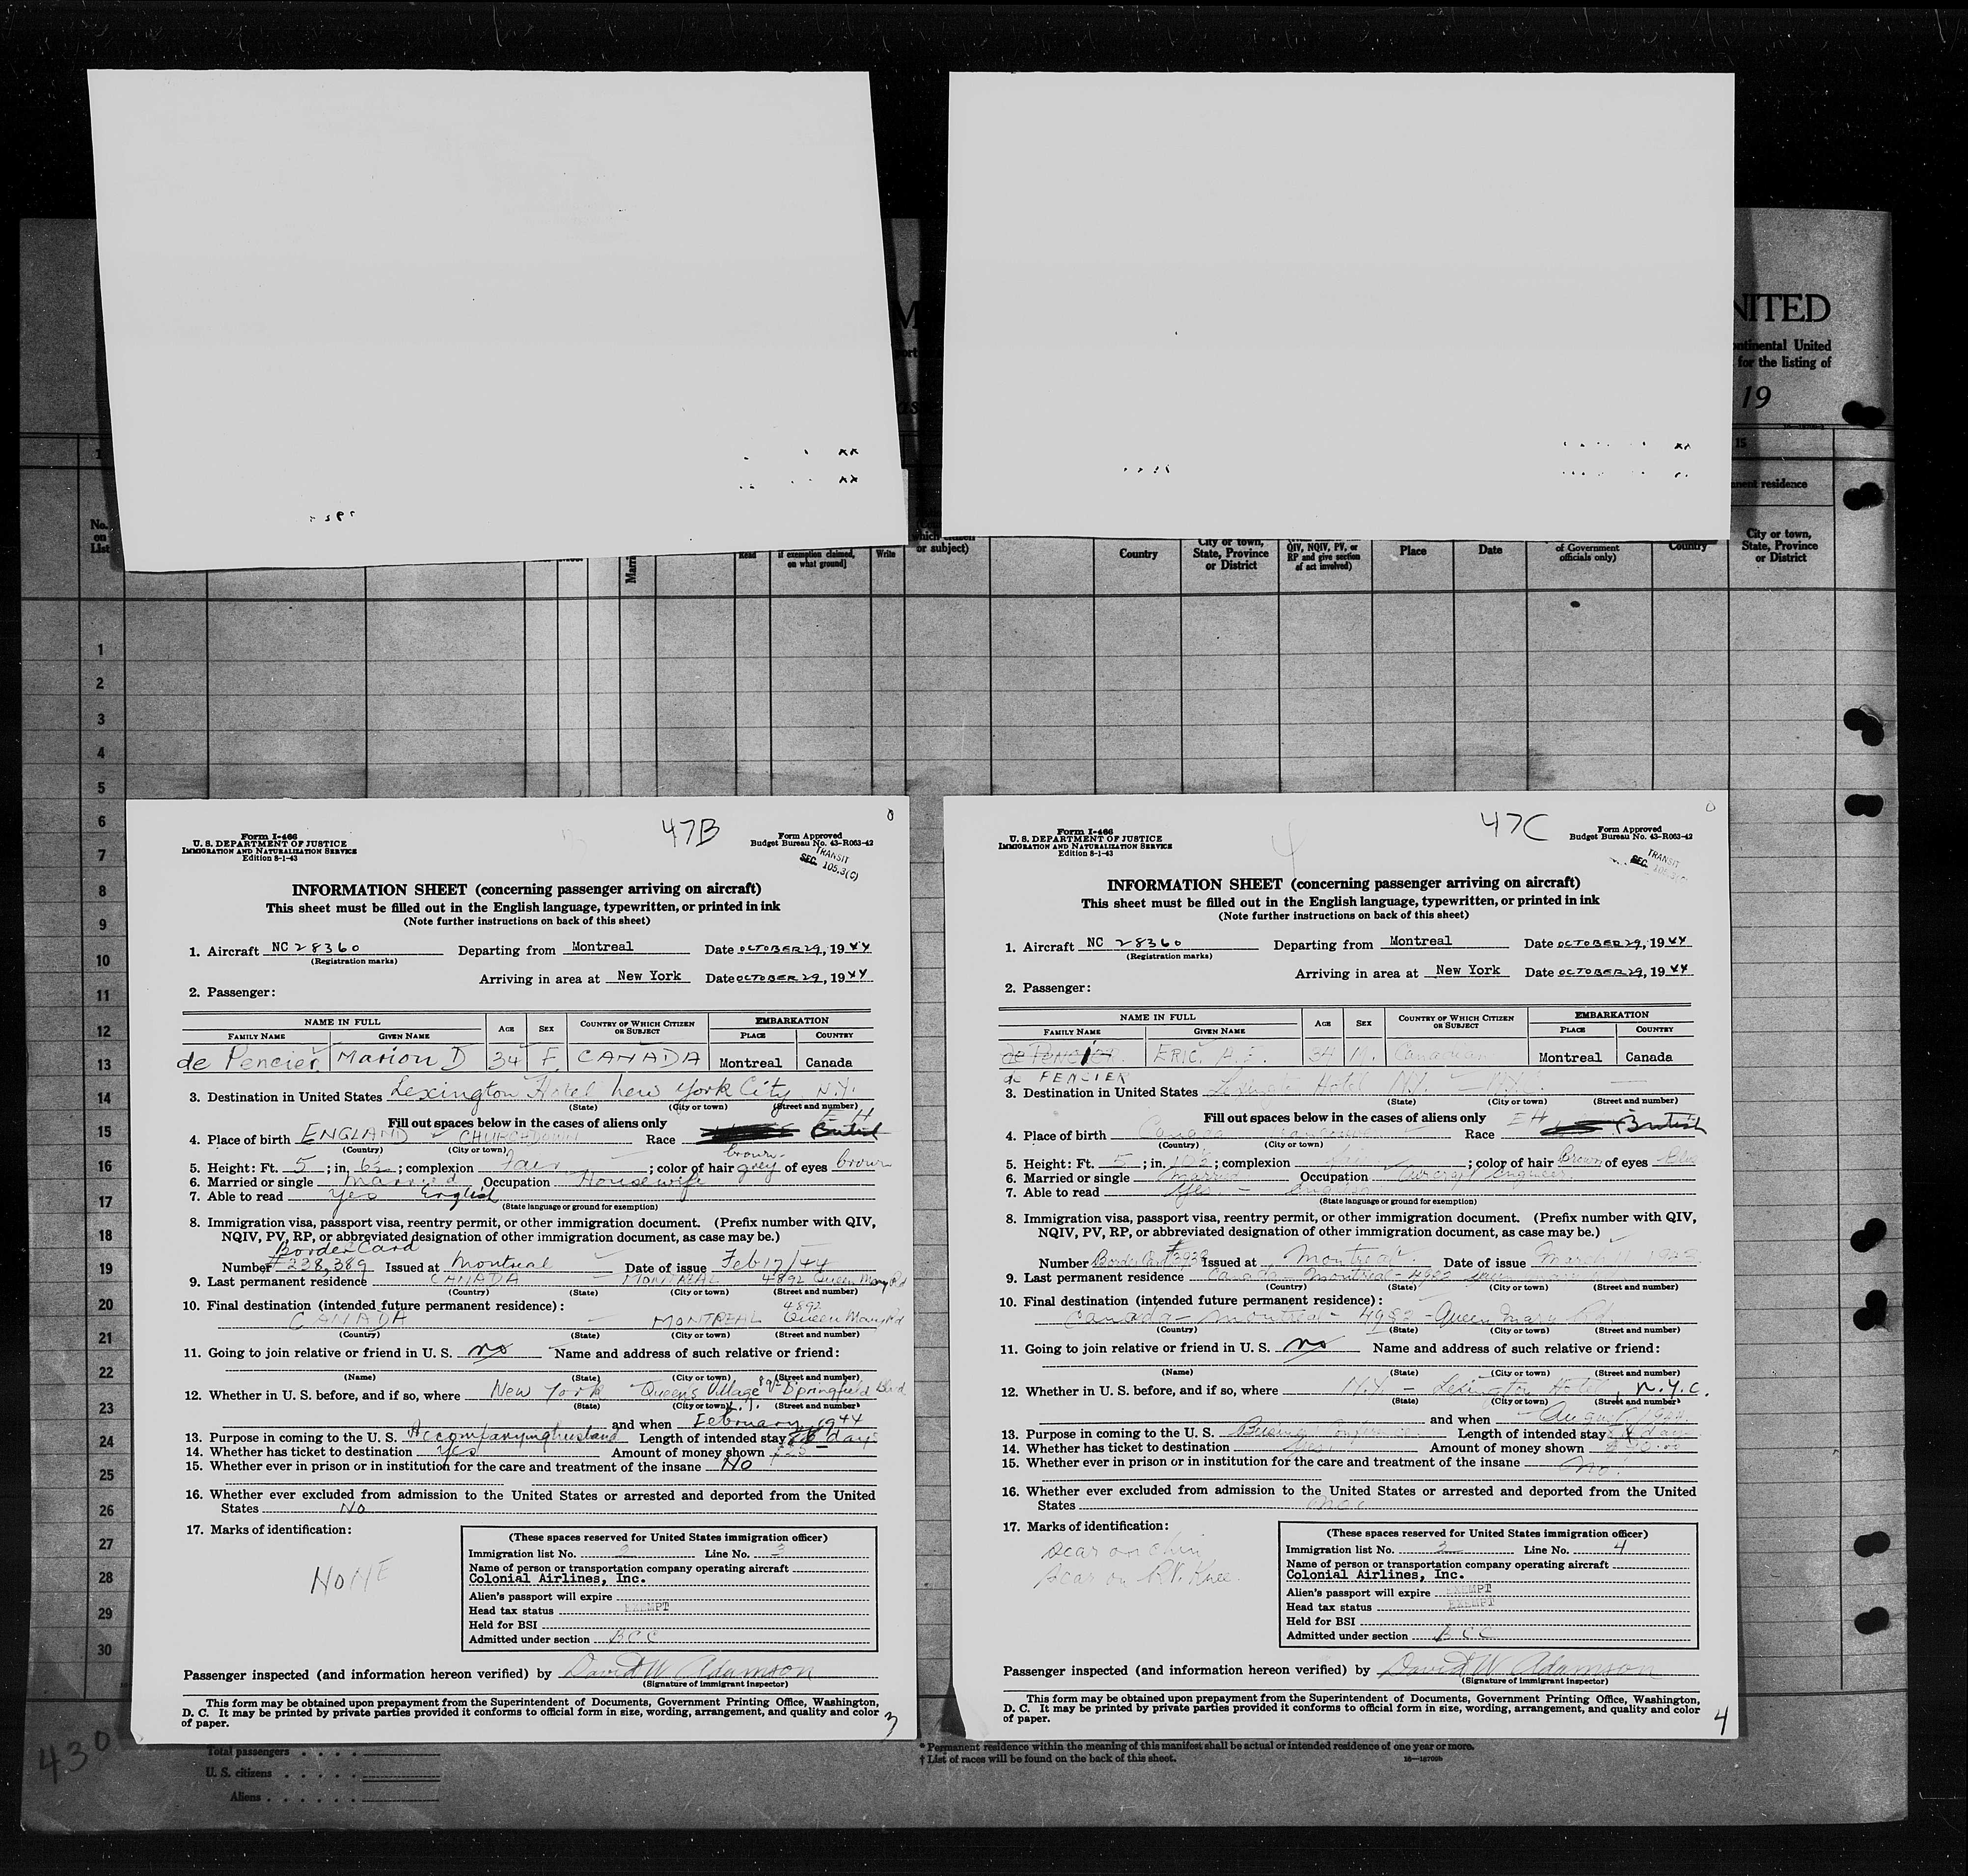 NITED
ontinental United
for the listing of
19
15
nent residence
No. on List
Read
if exemption claimed, on what ground]
Write
or subject)
Country
City or town, State, Province or District
QIV, NQIV, PV, or RP and give section of act involved)
Place
Date
of Government officials only)
Country
City or town, State, Province or District
1
2
3
4
5
6
7
8
9
10
11
12
13
14
15
16
17
18
19
20
21
22
23
24
25
26
27
28
29
30
47B
Form I-466
U. S. DEPARTMENT OF JUSTICE
IMMIGRATION AND NATURALIZATION SERVICE
Edition 8-1-43
Form Approved
Budget Bureau No. 43-R063-42
TRANSIT
SEC. 105.3(C)
INFORMATION SHEET (concerning passenger arriving on aircraft)
This sheet must be filled out in the English language, typewritten, or printed in ink
(Note further instructions on back of this sheet)
1. Aircraft NC 28360 Departing from Montreal Date OCTOBER 29, 1944
(Registration marks)
Arriving in area at New York Date OCTOBER 29, 1944
2. Passenger:
NAME IN FULL AGE SEX COUNTRY OF WHICH CITIZEN OR SUBJECT EMBARKATION
FAMILY NAME GIVEN NAME PLACE COUNTRY
de Pencier Marion D 34 F. CANADA Montreal Canada
3. Destination in United States Lexington Hotel New York City N.Y.
(State) (City or town) (Street and number)
Fill out spaces below in the cases of aliens only EH
4. Place of birth ENGLAND CHURCHDOWN Race British
(Country) (City or town)
brown
5. Height: Ft. 5; in. 6½; complexion fair; color of hair grey of eyes brown
6. Married or single Married Occupation Housewife
7. Able to read Yes English
(State language or ground for exemption)
8. Immigration visa, passport visa, reentry permit, or other immigration document. (Prefix number with QIV,
NQIV, PV, RP, or abbreviated designation of other immigration document, as case may be.)
Border Card
Number #238,389 Issued at Montreal Date of issue Feb 17/44
9. Last permanent residence CANADA – MONTREAL 4892 Queen Mary Rd
(Country) (State) (City or town) (Street and number)
10. Final destination (intended future permanent residence): 4892
CANADA – MONTREAL Queen Mary Rd
(Country) (State) (City or town) (Street and number)
11. Going to join relative or friend in U. S. no Name and address of such relative or friend:
(Name) (State) (City or town) (Street and number)
12. Whether in U. S. before, and if so, where New York Queens Village Springfield Blvd
(State) (City or town) (Street and number)
and when February 1944
13. Purpose in coming to the U. S. Accompanying husband Length of intended stay days
14. Whether has ticket to destination Yes Amount of money shown
15. Whether ever in prison or in institution for the care and treatment of the insane No
16. Whether ever excluded from admission to the United States or arrested and deported from the United
States No
17. Marks of identification:
NONE
(These spaces reserved for United States immigration officer)
Immigration list No. 2 Line No. 3
Name of person or transportation company operating aircraft
Colonial Airlines, Inc.
Alien's passport will expire
Head tax status EXEMPT
Held for BSI
Admitted under section BCC
Passenger inspected (and information hereon verified) by David W Adamson
(Signature of immigrant inspector)
This form may be obtained upon prepayment from the Superintendent of Documents, Government Printing Office, Washington,
D. C. It may be printed by private parties provided it conforms to official form in size, wording, arrangement, and quality and color
of paper.
3
4
47C
Form I-466
U. S. DEPARTMENT OF JUSTICE
IMMIGRATION AND NATURALIZATION SERVICE
Edition 8-1-43
Form Approved
Budget Bureau No. 43-R063-42
TRANSIT
SEC.
INFORMATION SHEET (concerning passenger arriving on aircraft)
This sheet must be filled out in the English language, typewritten, or printed in ink
(Note further instructions on back of this sheet)
1. Aircraft NC 28360 Departing from Montreal Date OCTOBER 29, 1944
(Registration marks)
Arriving in area at New York Date OCTOBER 29, 1944
2. Passenger:
NAME IN FULL AGE SEX COUNTRY OF WHICH CITIZEN OR SUBJECT EMBARKATION
FAMILY NAME GIVEN NAME PLACE COUNTRY
de PENCIER. ERIC. A. F. 34 M. Canadian Montreal Canada
de PENCIER
3. Destination in United States Lexington Hotel N.Y. – N.Y.C.
(State) (City or town) (Street and number)
Fill out spaces below in the cases of aliens only EH
4. Place of birth Canada Race British
(Country) (City or town)
5. Height: Ft. 5; in. ; complexion ; color of hair Brown of eyes
6. Married or single Married Occupation Aircraft Engineer
7. Able to read Yes – English
(State language or ground for exemption)
8. Immigration visa, passport visa, reentry permit, or other immigration document. (Prefix number with QIV,
NQIV, PV, RP, or abbreviated designation of other immigration document, as case may be.)
Number Border Card Issued at Montreal Date of issue March
9. Last permanent residence Canada – Montreal – 4983
(Country) (State) (City or town) (Street and number)
10. Final destination (intended future permanent residence):
Canada – Montreal – 4983 – Queen Mary Rd.
(Country) (State) (City or town) (Street and number)
11. Going to join relative or friend in U. S. no Name and address of such relative or friend:
(Name) (State) (City or town) (Street and number)
12. Whether in U. S. before, and if so, where N.Y. – Lexington Hotel, N.Y.C.
(State) (City or town) (Street and number)
and when August
13. Purpose in coming to the U. S. Business Conference Length of intended stay days
14. Whether has ticket to destination Yes. Amount of money shown
15. Whether ever in prison or in institution for the care and treatment of the insane No.
16. Whether ever excluded from admission to the United States or arrested and deported from the United
States No.
17. Marks of identification:
Scar on chin
Scar on Rt. Knee.
(These spaces reserved for United States immigration officer)
Immigration list No. 2 Line No. 4
Name of person or transportation company operating aircraft
Colonial Airlines, Inc.
Alien's passport will expire EXEMPT
Head tax status EXEMPT
Held for BSI
Admitted under section BCC
Passenger inspected (and information hereon verified) by David W Adamson
(Signature of immigrant inspector)
This form may be obtained upon prepayment from the Superintendent of Documents, Government Printing Office, Washington,
D. C. It may be printed by private parties provided it conforms to official form in size, wording, arrangement, and quality and color
of paper.
4
430
Total passengers
U. S. citizens
Aliens
* Permanent residence within the meaning of this manifest shall be actual or intended residence of one year or more.
† List of races will be found on the back of this sheet.